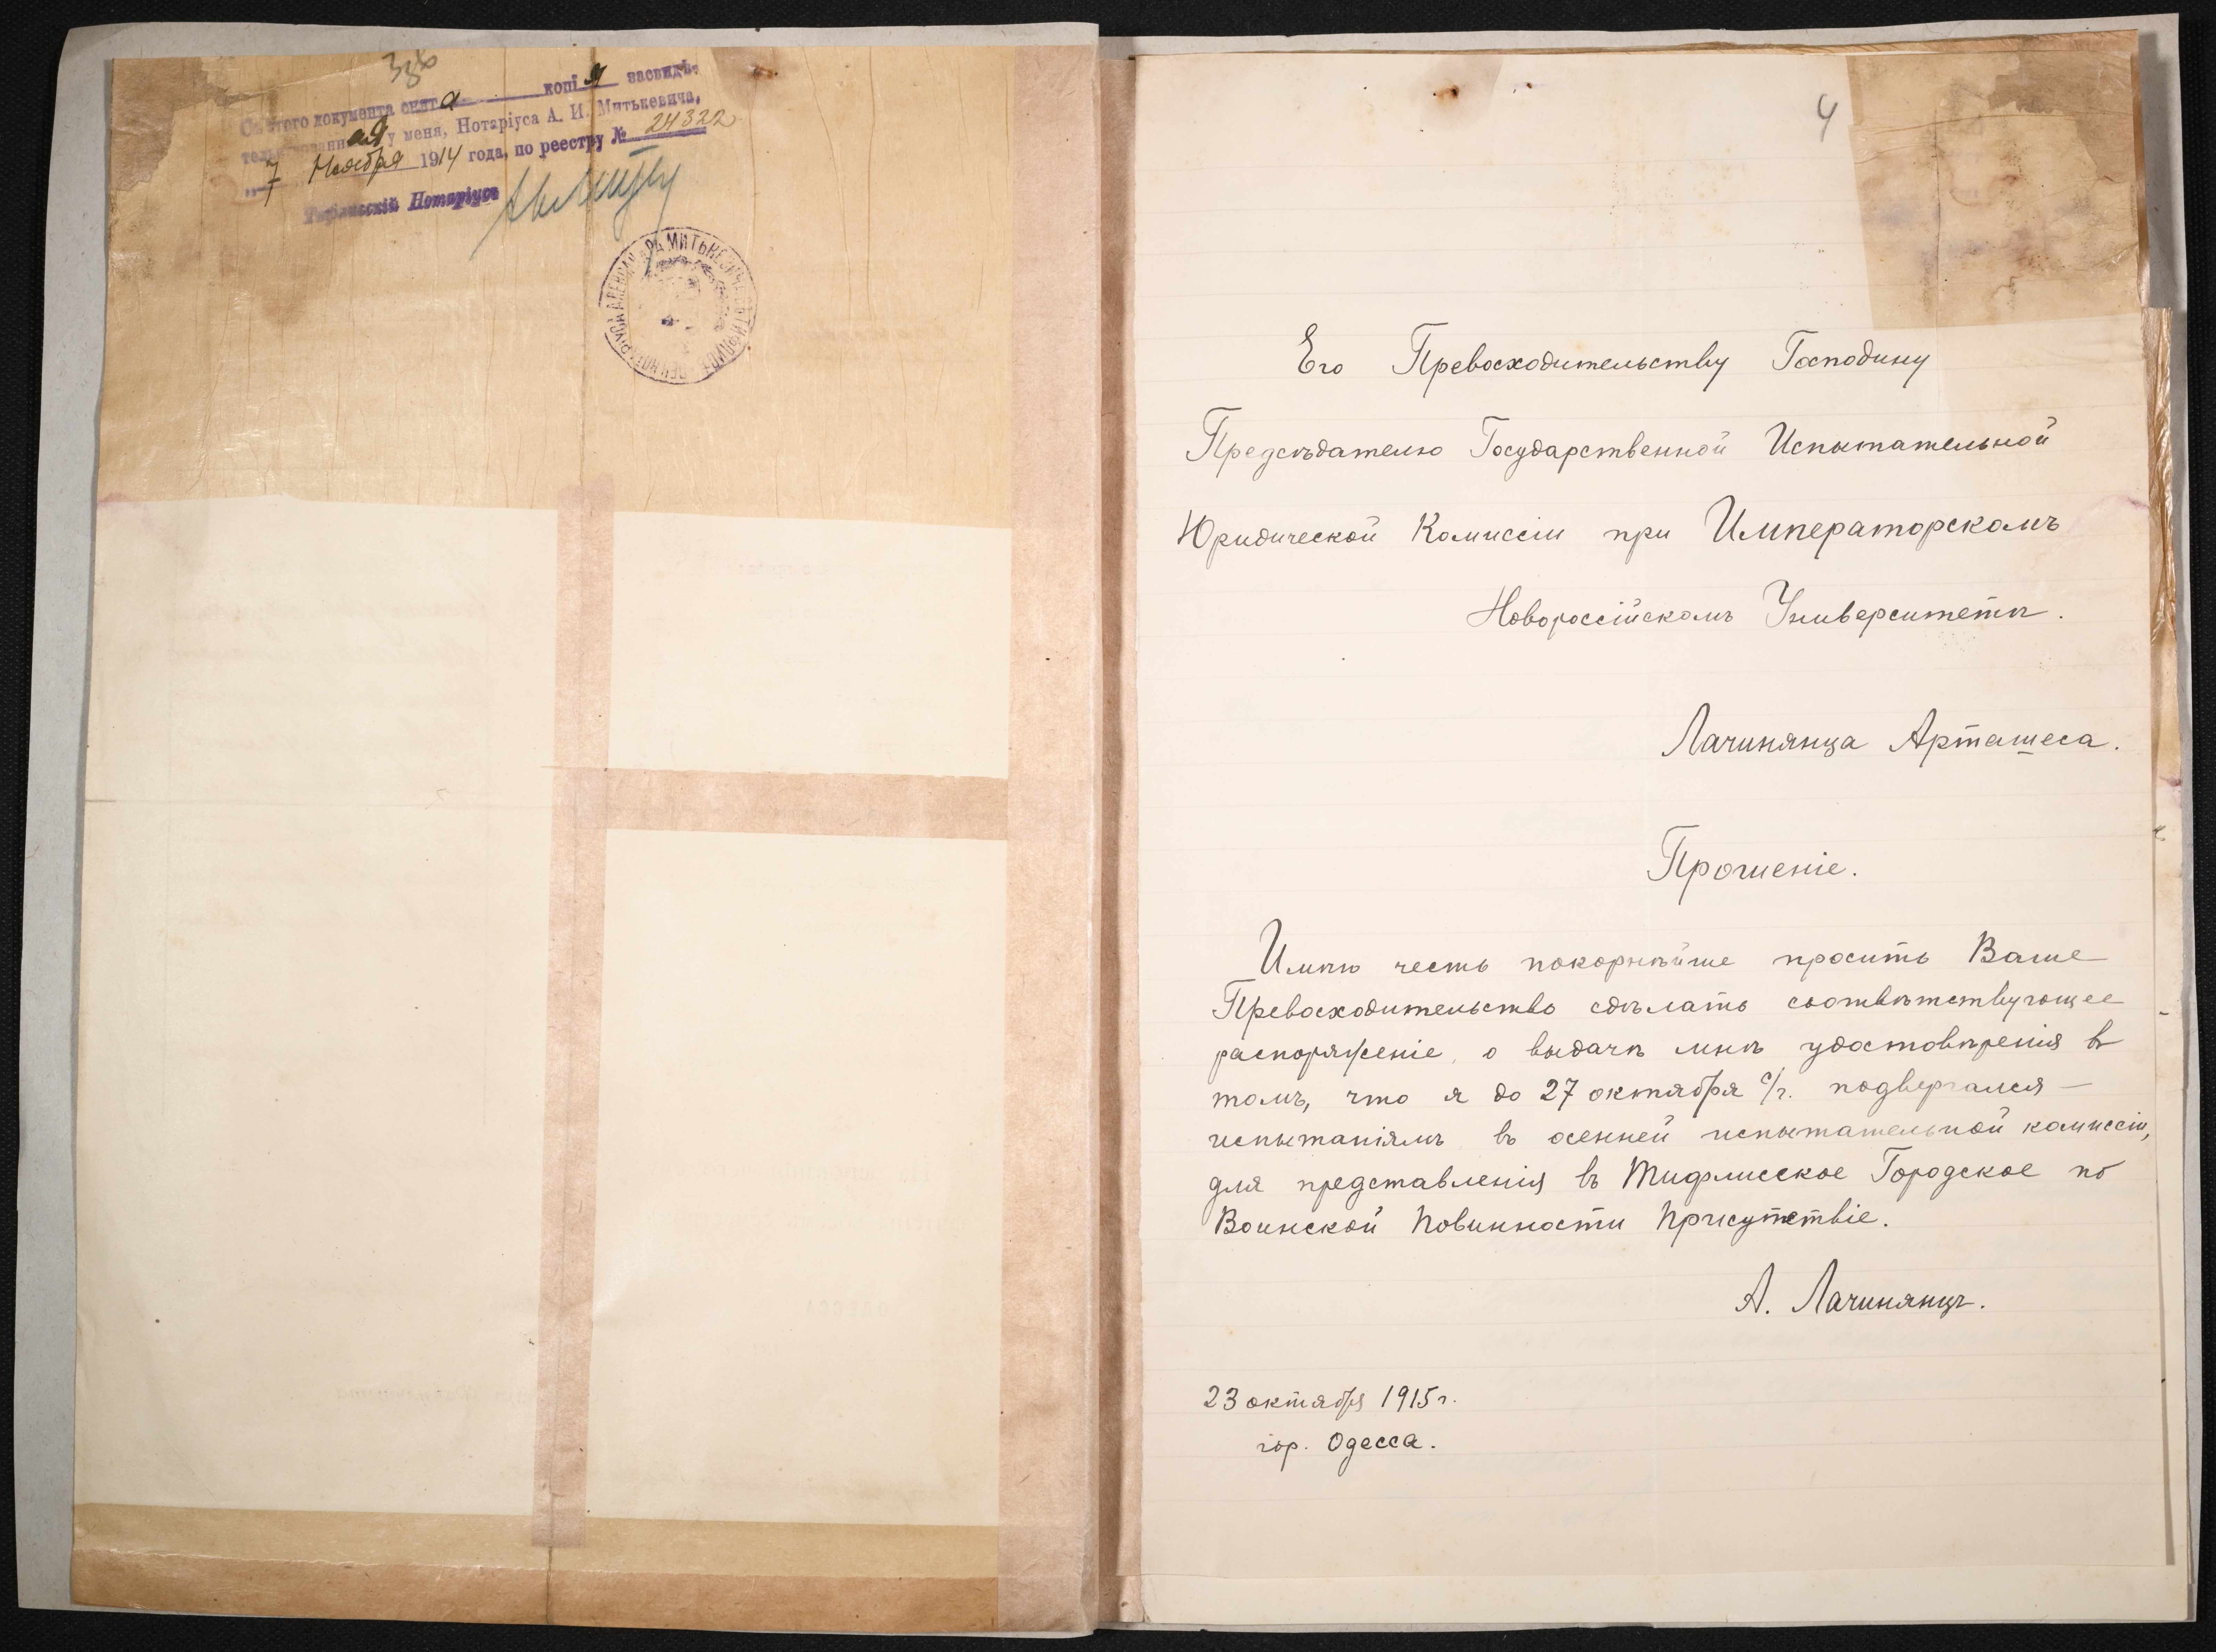 Съ этого документа снята копія засвидѣ-
тельствованная у меня, Нотаріуса А. И. Митькевича,
„7 Ноября 1914 года, по реестру № 24322
Тифлисскій Нотаріусъ
4
Его Превосходительству Господину
Предсѣдателю Государственной Испытательной
Юридической Комиссіи при Императорскомъ
Новороссійскомъ Университетѣ.
Лачинянца Арташеса.
Прошеніе.
Имѣю честь покорнѣйше просить Ваше
Превосходительство сдѣлать соотвѣтствующее
распоряженіе, о выдачѣ мнѣ удостовѣренія въ
томъ, что я до 27 октября с/г. подвергался —
испытаніямъ въ осенней испытательной комиссіи,
для представленія въ Тифлисское Городское по
Воинской Повинности Присутствіе.
А. Лачинянцъ.
23 октября 1915 г.
гор. Одесса.